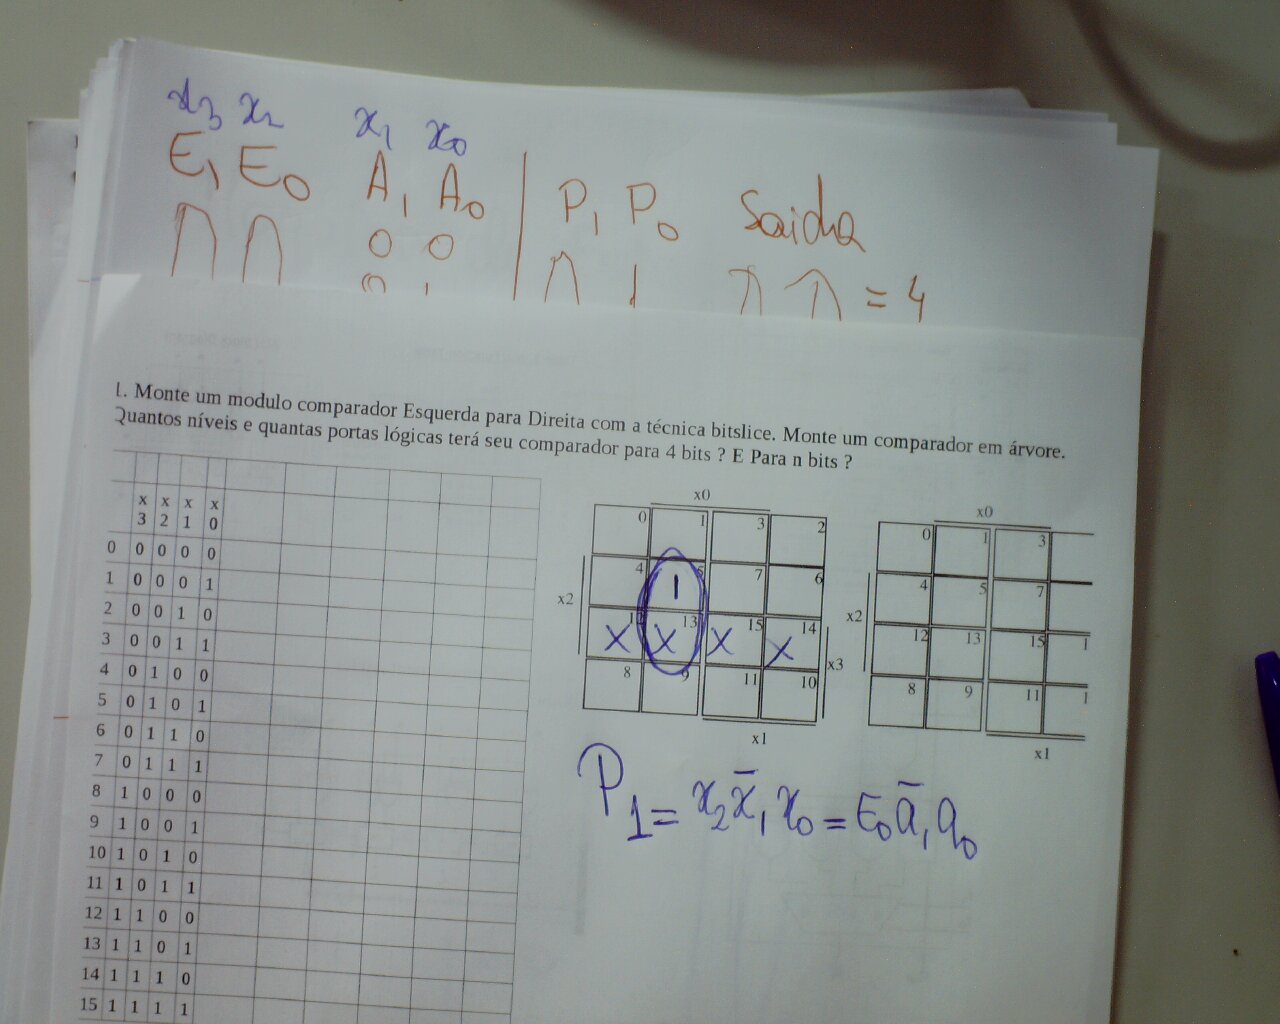 x3 x2 x1 x0
E1 E0 A1 A0 P1 P0 Saida
0 0
0 1 = 4
1. Monte um modulo comparador Esquerda para Direita com a técnica bitslice. Monte um comparador em árvore.
Quantos níveis e quantas portas lógicas terá seu comparador para 4 bits ? E Para n bits ?
x x x x
3 2 1 0
0 0 0 0 0
1 0 0 0 1
2 0 0 1 0
3 0 0 1 1
4 0 1 0 0
5 0 1 0 1
6 0 1 1 0
7 0 1 1 1
8 1 0 0 0
9 1 0 0 1
10 1 0 1 0
11 1 0 1 1
12 1 1 0 0
13 1 1 0 1
14 1 1 1 0
15 1 1 1 1
x0
0 1 3 2
4 5 7 6
1
x2
12 13 15 14
X X X X
x3
8 9 11 10
x1
P1 = x2 x̄1 x0 = E0 ā1 a0
x0
0 1 3
4 5 7
x2
12 13 15 1
8 9 11 1
x1